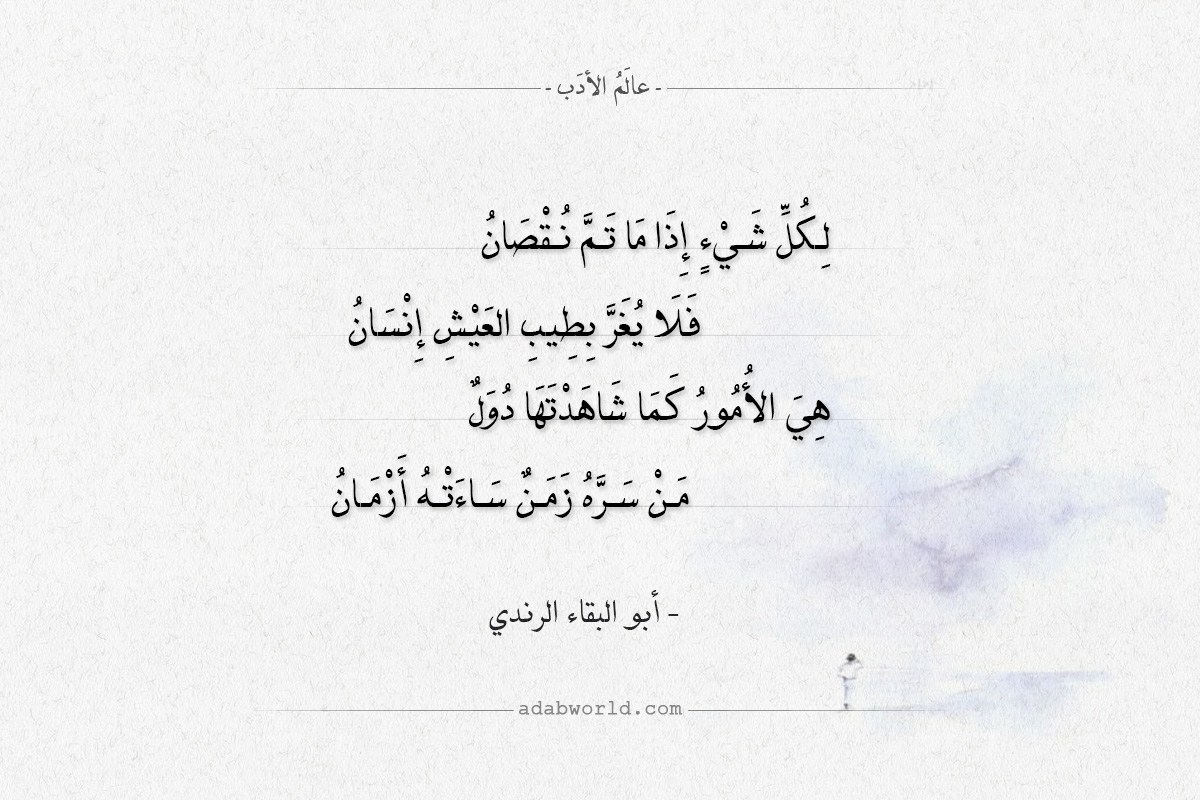 - عالَمُ الأدَب -
لِكُلِّ شَـيْءٍ إِذَا مَا تَـمَّ نُـقْصَانُ
فَلَا يُغَرَّ بِطِيبِ العَيْشِ إِنْسَانُ
هِيَ الأُمُورُ كَمَا شَاهَدْتَهَا دُوَلٌ
مَـنْ سَـرَّهُ زَمَـنٌ سَـاءَتْـهُ أَزْمَـانُ
- أبو البقاء الرندي
adabworld.com